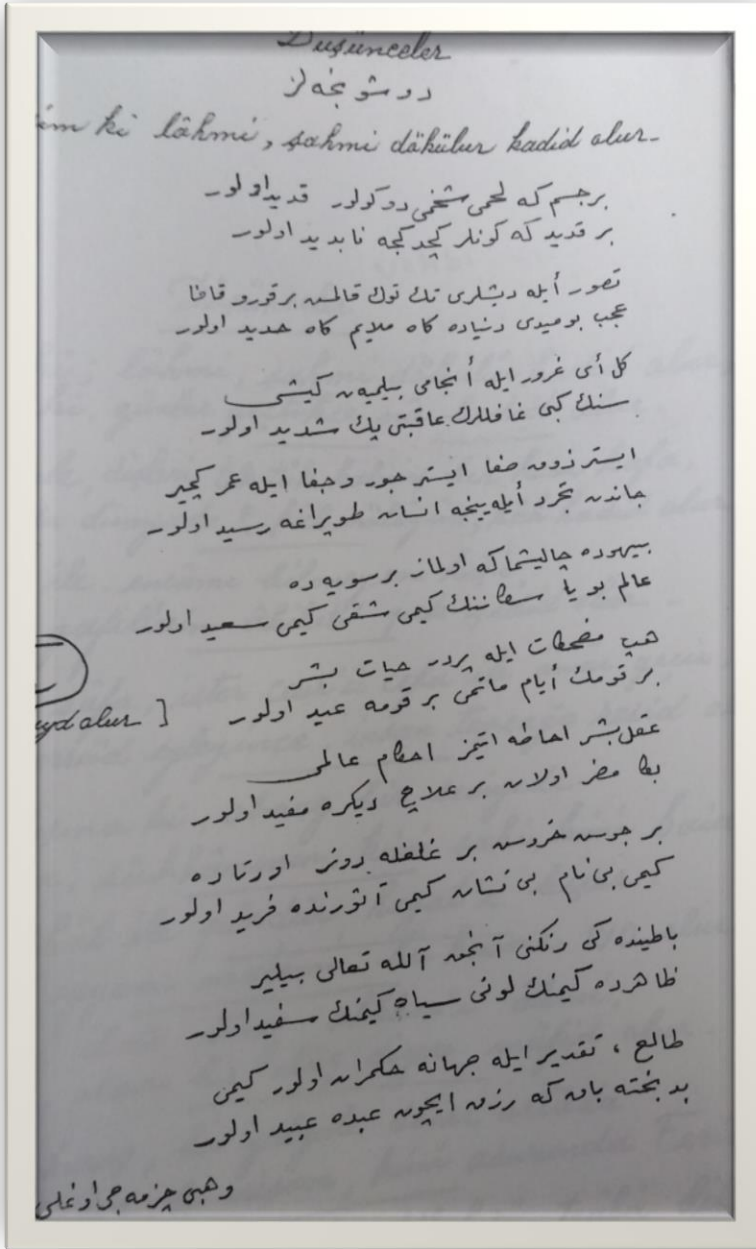 Düşünceler
دوشونجەلر
im ki lâhmi, şahmi dökülür kadid olur-
بر جسم که لحمی شحمی دوکولور قدید اولور
بر قدید که کونلر کچدکجه ناپدید اولور
تصور أیله دیشلری تك توك قالمش بر قورو قافا
عجب بومیدی دنیاده کاه ملایم کاه حدید اولور
کل أی غرور ایله أنجامی بیلمیەن کیشی
سنك کبی غافللرك عاقبتی پك شدید اولور
ایستر ذوق صفا ایستر جور و جفا ایله عمر کچیر
جاندن تجرد أیلەیینجه انسان طوپراغه رسید اولور
بیهوده چالیشما که اولماز بر سویه ده
عالم بو یا کیمی شقی کیمی سعید اولور
هپ مضحکات ایله پردر حیات بشر
بر قومك أیام ماتمی بر قومه عید اولور
yd olur ]
عقل بشر احاطه ایتمز احکام عالمی
بکا مضر اولان بر علاج دیکره مفید اولور
بر جوش خروش بر غلغله دونر اورتاده
کیمی بی نام بی نشان کیمی آثورنده فرید اولور
باطینده کی رنکنی آنجق آلله تعالی بیلیر
ظاهرده کیمنك لونی سیاه کیمنك سفید اولور
طالع ، تقدیر ایله جهانه حکمران اولور کیمی
بدبخته باق که رزق ایچون عبده عبید اولور
وهبی چزمه جی اوغلی